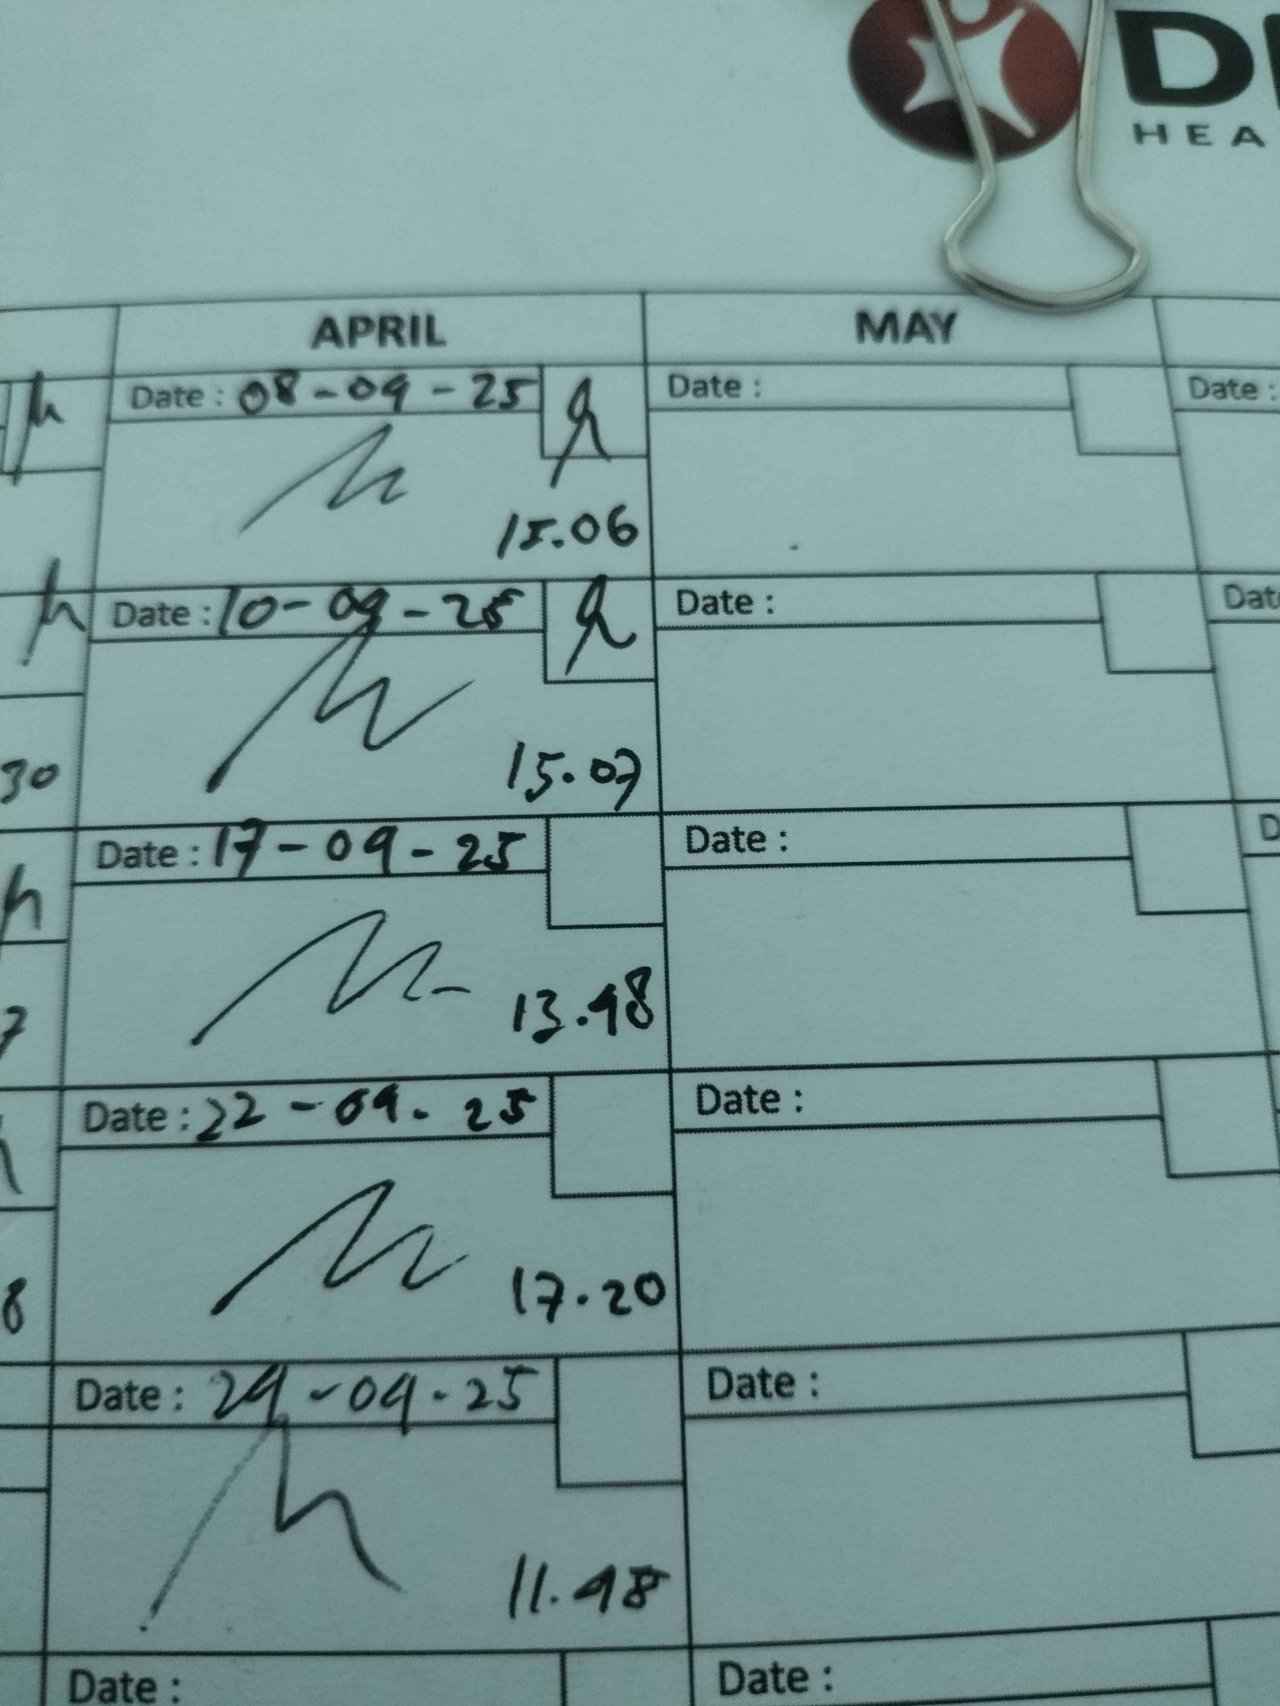 DI
HEA
APRIL
MAY
Date : 08-04-25
Date :
Date :
15.06
Date : 10-04-25
Date :
Date
15.07
30
Date : 17-04-25
Date :
D
13.48
7
Date : 22-04-25
Date :
17.20
8
Date : 24-04-25
Date :
11.48
Date :
Date :